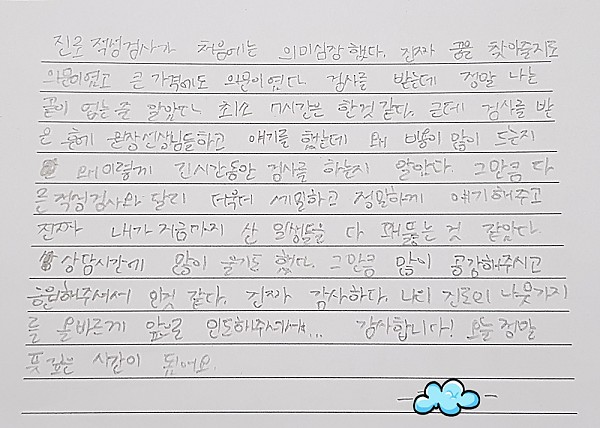 진로 적성검사가 처음에는 의미심장 했다. 진짜 꿈을 찾아줄지도
의문이였고 큰 가격에도 의문이였다. 검사를 받는데 정말 나는
끝이 없는줄 알았다. 최소 7시간은 한것 같다. 근데 검사를 받
은 후에 원장선생님들하고 얘기를 했는데 왜 비용이 많이 드는지
왜 이렇게 긴시간동안 검사를 하는지 알았다. 그만큼 다
른 적성검사와 달리 더욱더 세밀하고 정밀하게 얘기해주고
진짜 내가 지금까지 산 일생들을 다 꽤뚫는 것 같았다.
상담시간에 많이 울기도 했다. 그만큼 많이 공감해주시고
응원해주셔서 인것 같다. 진짜 감사하다. 나의 진로의 나뭇가지
를 올바르게 앞으로 인도해주셔서... 감사합니다! 오늘 정말
뜻 깊은 시간이 됬어요.